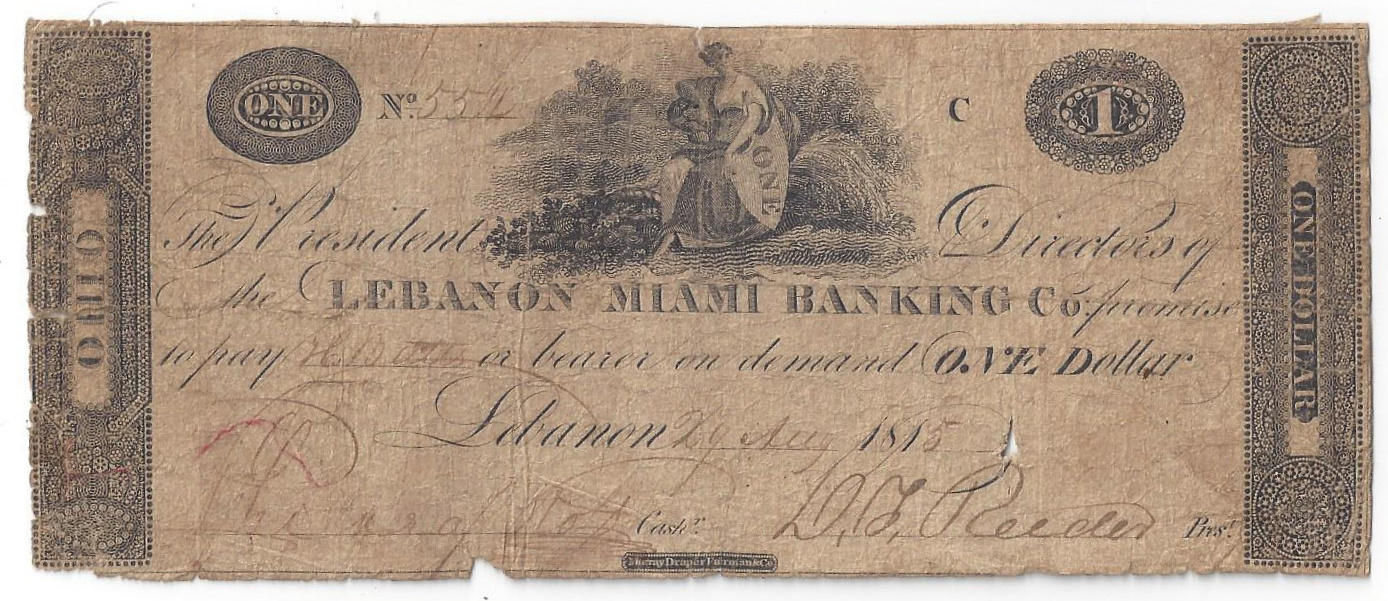 OHIO
ONE
No. 554
ONE
C
1
ONE DOLLAR
The President Directors of
the LEBANON MIAMI BANKING Co. promise
to pay or bearer on demand ONE Dollar
Lebanon 29 Aug 1815
Cashr. D. F. Reeder Prest.
Murray Draper Fairman & Co